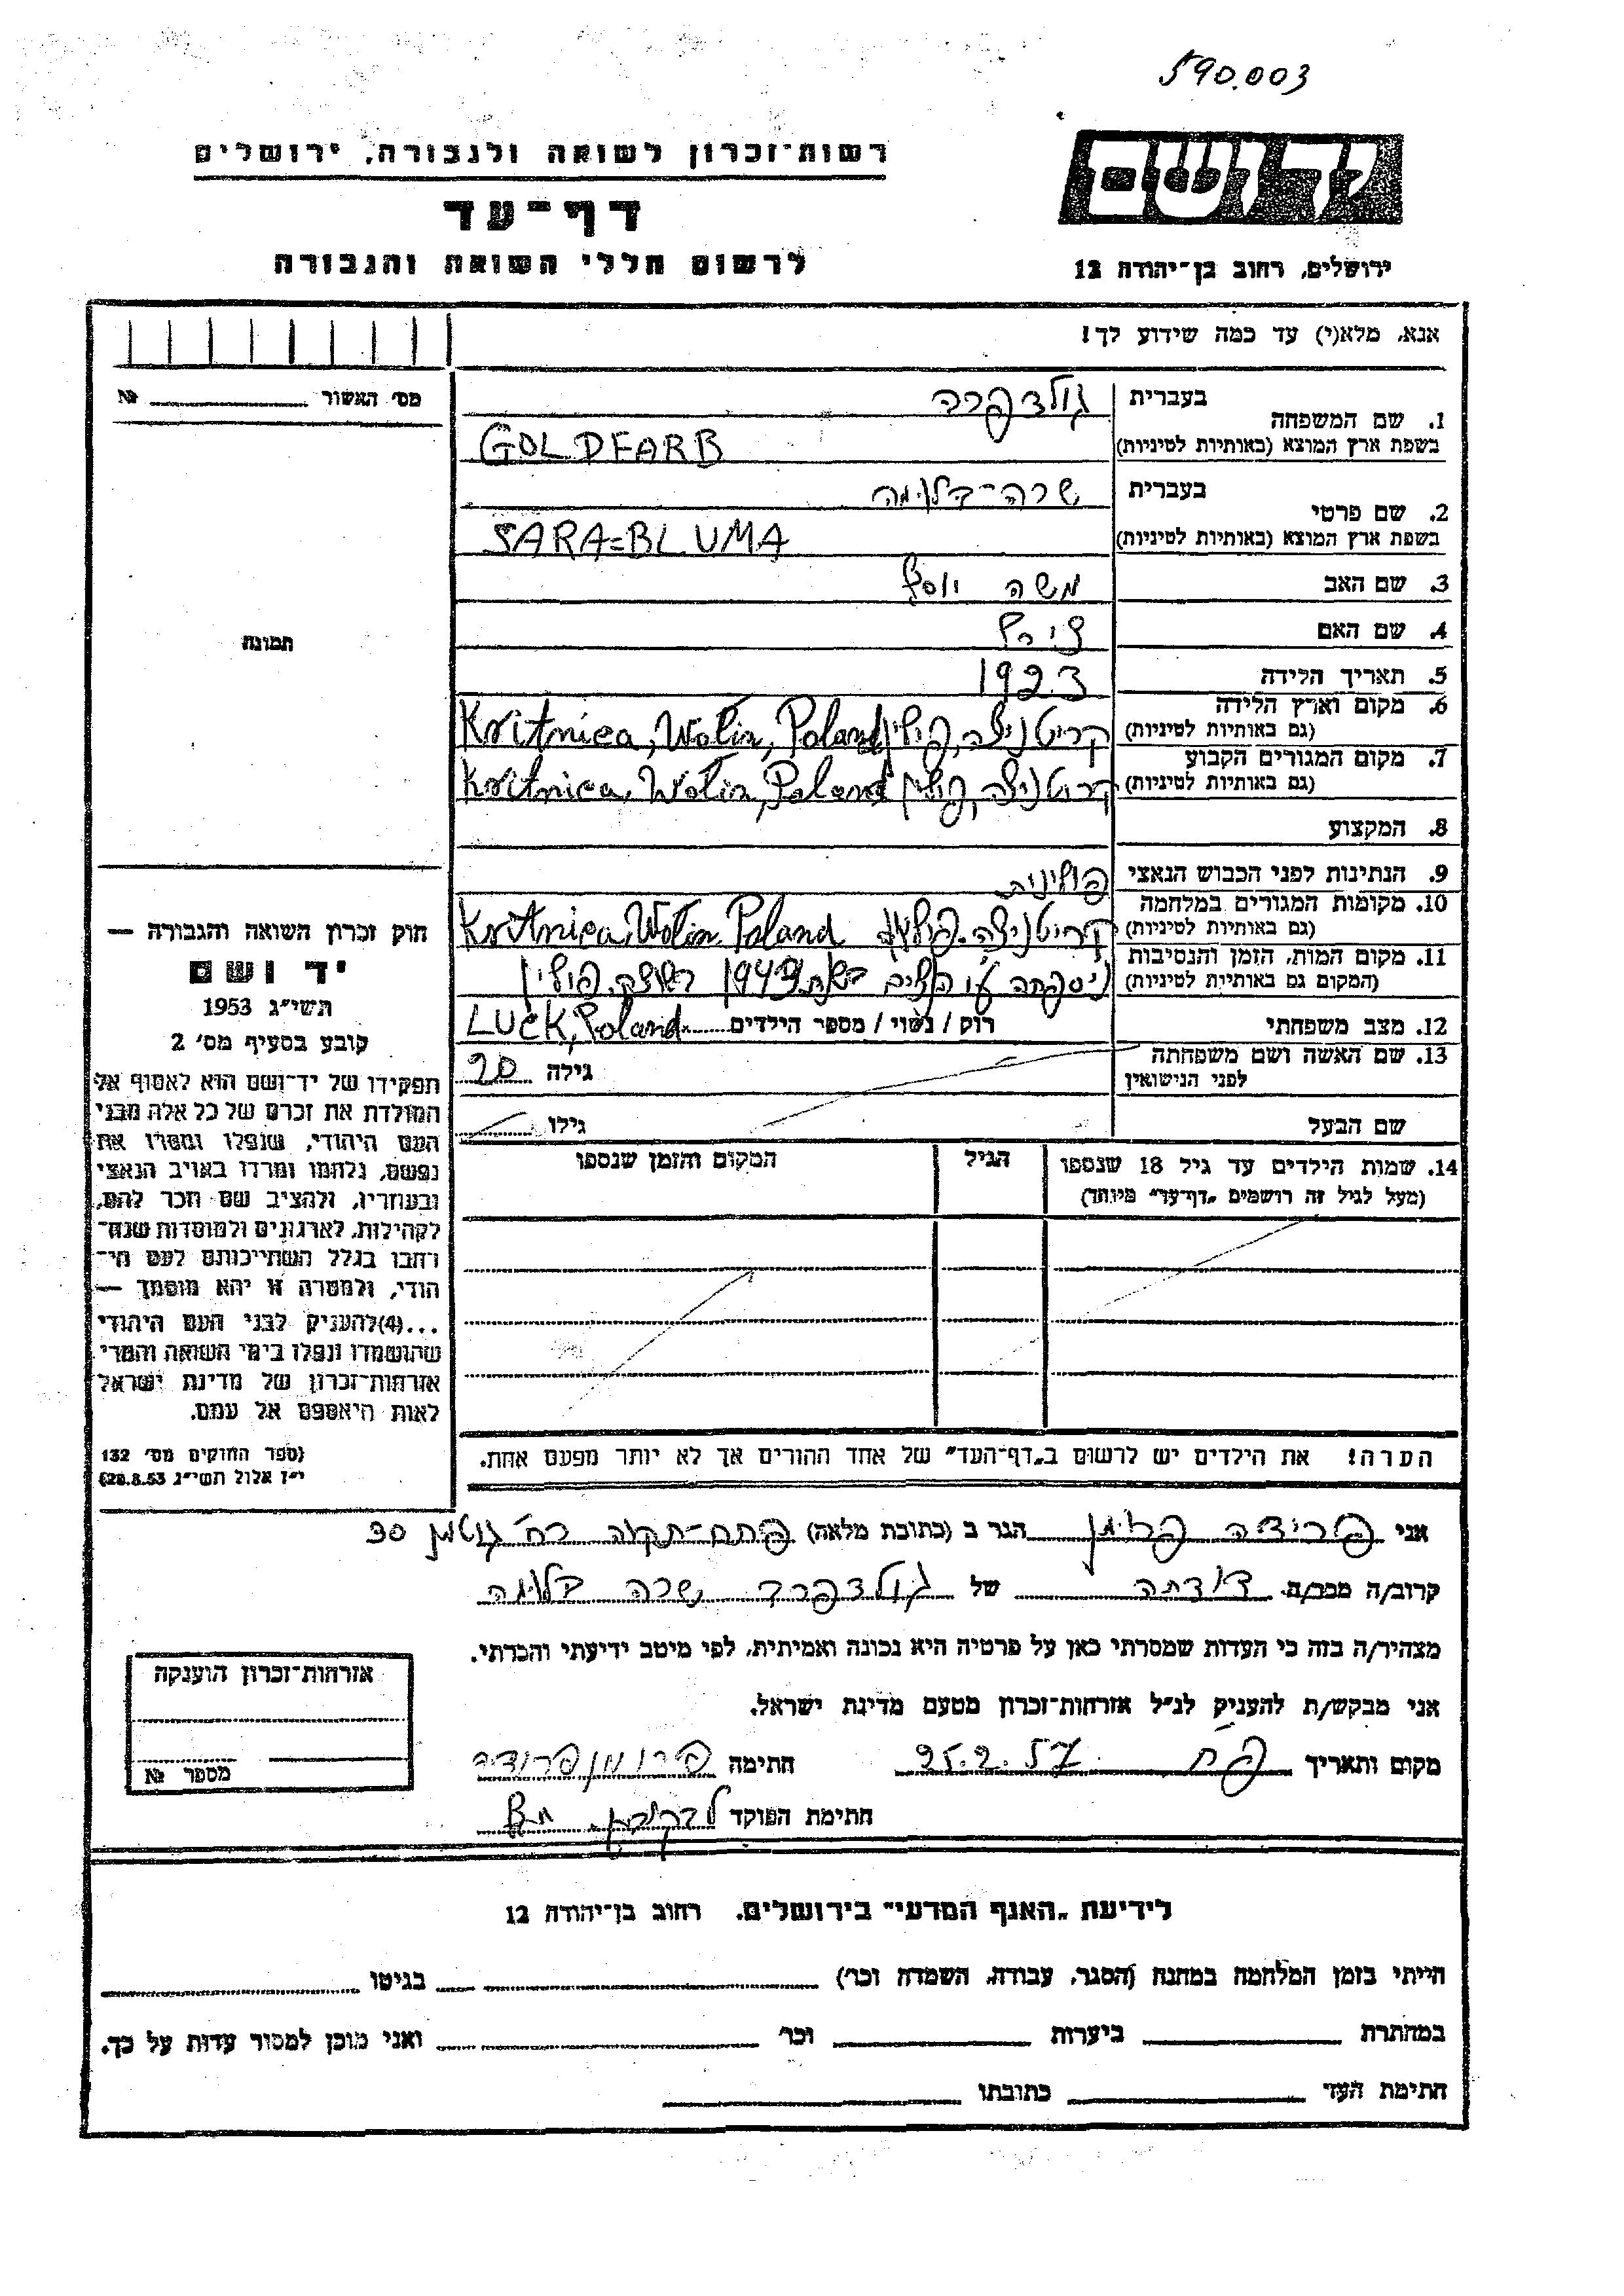 590.003
יד ושם
רשות-זכרון לשואה ולגבורה, ירושלים
דף-עד
לרשום חללי השואה והגבורה
ירושלים, רחוב בן-יהודה 12
אנא, מלא(י) עד כמה שידוע לך!
מס׳ האשור № 
1. שם המשפחה
בעברית גולדפרב
בשפת ארץ המוצא (באותיות לטיניות) GOLDFARB
2. שם פרטי
בעברית שרה-בלומה
בשפת ארץ המוצא (באותיות לטיניות) SARA=BLUMA
3. שם האב משה יוסף
4. שם האם
5. תאריך הלידה 1923
6. מקום וארץ הלידה
(גם באותיות לטיניות) קריטניצה, פולין Kritnica, Wolin, Poland
7. מקום המגורים הקבוע
(גם באותיות לטיניות) קריטניצה, פולין Kritnica, Wolin, Poland
8. המקצוע
9. הנתינות לפני הכבוש הנאצי פולינית
10. מקומות המגורים במלחמה
(גם באותיות לטיניות) קריטניצה. פולין Kritnica, Wolin. Poland
11. מקום המות, הזמן והנסיבות
(המקום גם באותיות לטיניות) ניספתה ע״י הנאצים בשנת בלוצק. פולין
12. מצב משפחתי רוק / נשוי / מספר הילדים LUCK, Poland
13. שם האשה ושם משפחתה
לפני הנישואין גילה 20
שם הבעל גילו
14. שמות הילדים עד גיל 18 שנספו
(מעל לגיל זה רושמים „דף-עד״ מיוחד)
הגיל
המקום והזמן שנספו
הערה! את הילדים יש לרשום ב„דף-העד״ של אחד ההורים אך לא יותר מפעם אחת.
תמונה
חוק זכרון השואה והגבורה —
יד ושם
תשי״ג 1953
קובע בסעיף מס׳ 2
תפקידו של יד-ושם הוא לאסוף אל
המולדת את זכרם של כל אלה מבני
העם היהודי, שנפלו ומסרו את
נפשם, נלחמו ומרדו באויב הנאצי
ובעוזריו, ולהציב שם וזכר להם,
לקהילות, לארגונים ולמוסדות שנח-
רבו בגלל השתייכותם לעם הי-
הודי, ולמטרה זו יהא מוסמך —
...(4) להעניק לבני העם היהודי
שהושמדו ונפלו בימי השואה והמרי
אזרחות-זכרון של מדינת ישראל
לאות היאספם אל עמם.
(ספר החוקים מס׳ 132
י״ז אלול תשי״ג 28.8.53)
אני הגר ב (כתובת מלאה) פתח-תקוה רח׳ גוטמן 30
קרוב/ה מכר/ה דודתה של גולדפרב שרה בלומה
מצהיר/ה בזה כי העדות שמסרתי כאן על פרטיה היא נכונה ואמיתית, לפי מיטב ידיעתי והכרתי.
אני מבקש/ת להעניק לנ״ל אזרחות-זכרון מטעם מדינת ישראל.
מקום ותאריך פ״ת 25.2.57 חתימה
חתימת הפוקד
אזרחות-זכרון הוענקה
מספר №
לידיעת „האגף המדעי״ בירושלים. רחוב בן-יהודה 12
הייתי בזמן המלחמה במחנה (הסגר, עבודה, השמדה וכו׳) בגיטו
במחתרת ביערות וכו׳ ואני מוכן למסור עדות על כך.
חתימת העד כתובתו